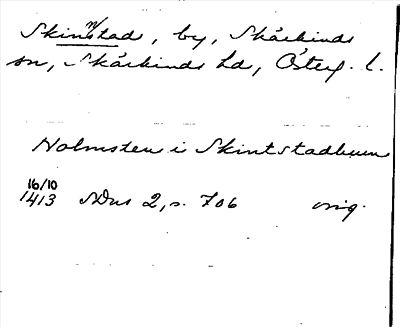 Skinstad, by, Skärkinds
sn, Skärkinds hd, Österg. l.
Holmsten i Skintstadhum
16/10
1413 SDns 2, s. 706 orig.